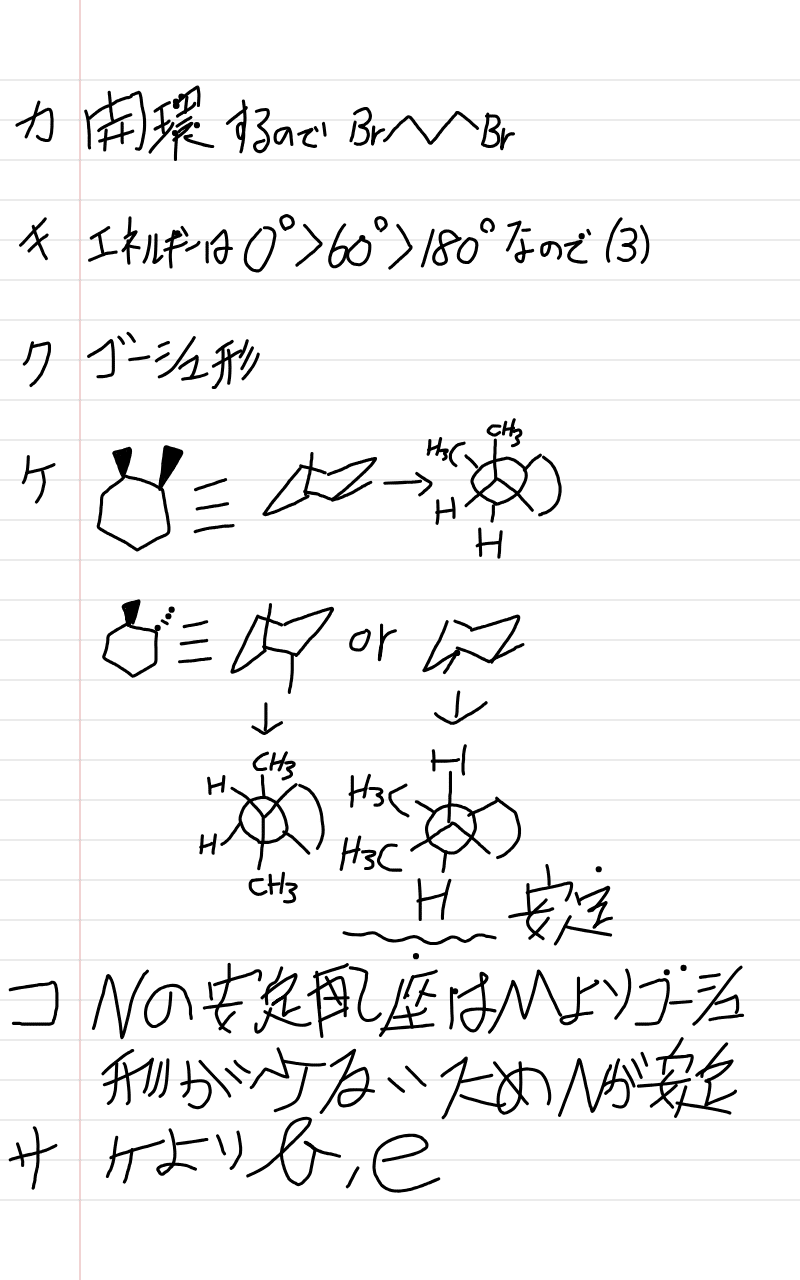 カ 開環するので Br Br
キ エネルギーは0°>60°>180°なので(3)
ク ゴーシュ形
ケ
CH3
H3C
H
H
or
CH3
H
H
CH3
H
H3C
H3C
H
安定
コ Nの安定配座はMよりゴーシュ
形が少ないためNが安定
サ ケよりb,e